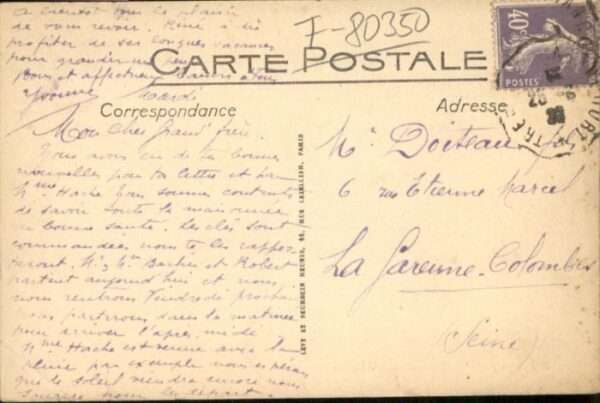 à bientôt pour le plaisir
de vous revoir. René a dû
profiter de ses longues vacances
pour grandir un peu
Bons et affectueux baisers à tous
Yvonne
Mardi
F-80350
CARTE POSTALE
40c
POSTES
Correspondance
Adresse
Mon cher grand frère.
Nous avons eu de tes bonnes
nouvelles par ta lettre et par
Mme Hache. Nous sommes contents
de savoir toute la maisonnée
en bonne santé. Les clés sont
commandées nous te les rappor-
terons. Mr & Mme et Robert
partent aujourd'hui et nous
nous rentrons Vendredi prochain
nous partirons dans la matinée
pour arriver l'après-midi
Mme Hache est venue avec la
pluie par exemple nous espérons
que le soleil viendra encore nous
sourire pour le départ.
LEVY ET NEURDEIN RÉUNIS, 44, RUE LETELLIER, PARIS
Mr Doiteau
6 rue Etienne Marcel
La Garenne-Colombes
(Seine)